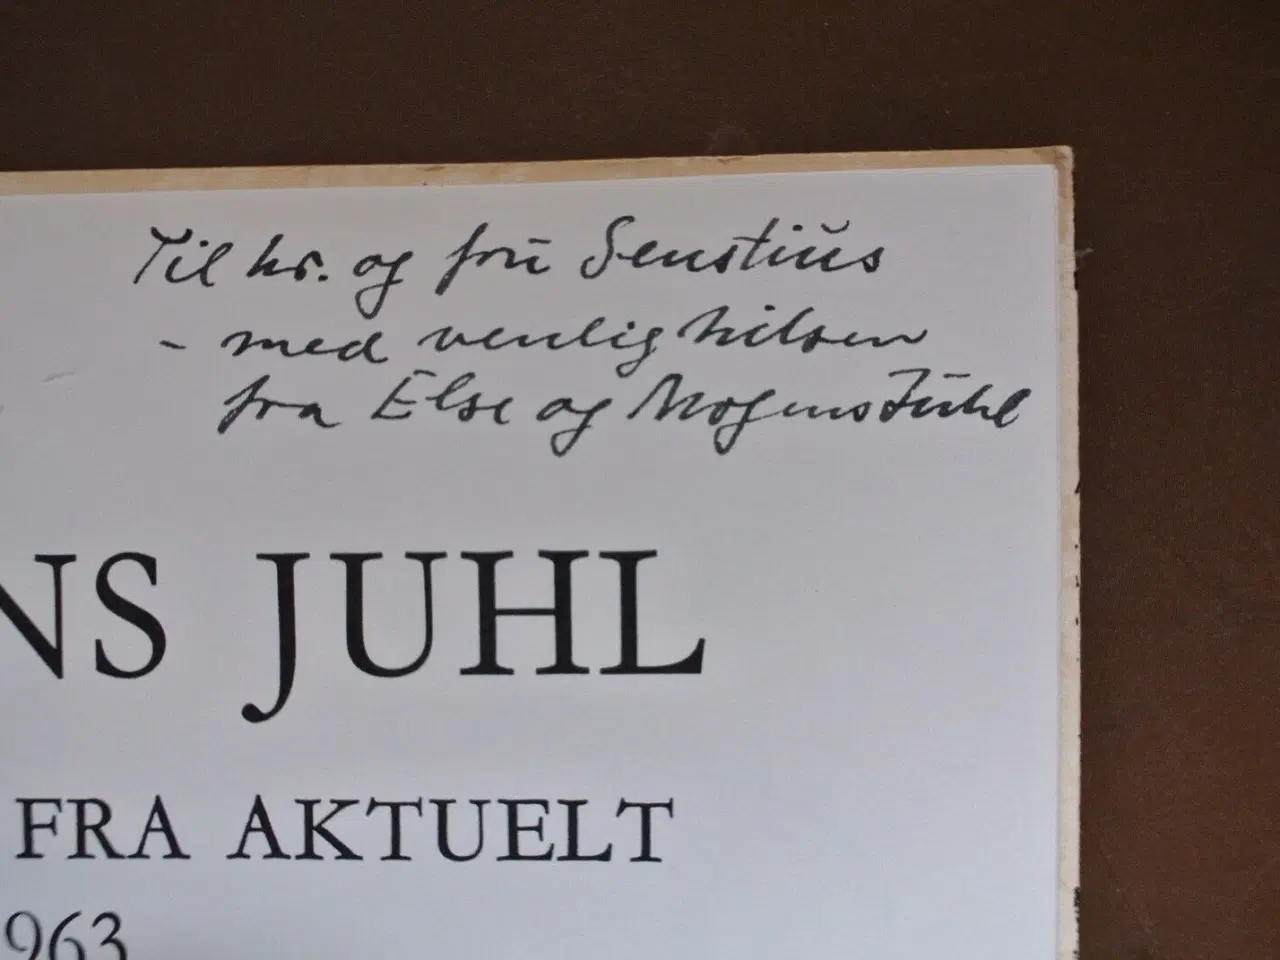 Til hr. og frū Senstiŭs
- med venlig hilsen
fra Else og Mogens Jūhl
NS JUHL
FRA AKTUELT
963